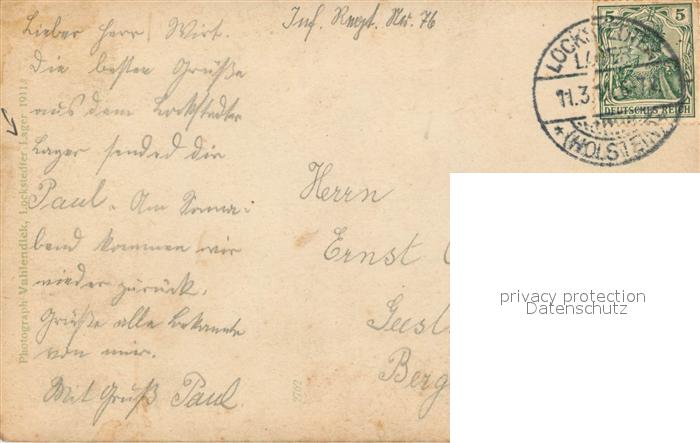 Inf. Regt. Nr. 76
Lieber Herr Wirt.
Die besten Grüße
aus dem Lockstedter
Lager sended Dir
Paul. Am Sonna-
bend kommen wir
wieder zurück.
Grüße alle Bekannte
von mir.
Mit Gruß Paul.
Herrn
Ernst
Geest
Berg
5 5
DEUTSCHES REICH
LOCKSTEDTER
LAGER
11.3.
* (HOLSTEIN)
Photograph Vahlendick, Lockstedter Lager 1911
2702
privacy protection
Datenschutz